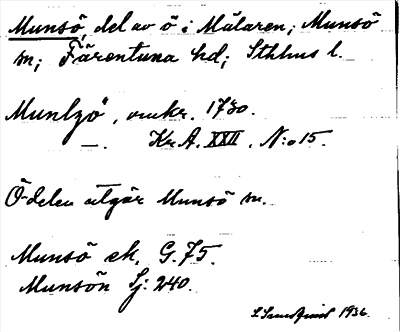 Munsö, del av ö i Mälaren; Munsö
sn; Färentuna hd; Sthlms l.
Muntzö, omkr. 1730.
—. Kr A. XXII. N:o 15.
Ödelen utgör Munsö sn.
Munsö ek. G. 75.
Munsön Sj: 240.
1936